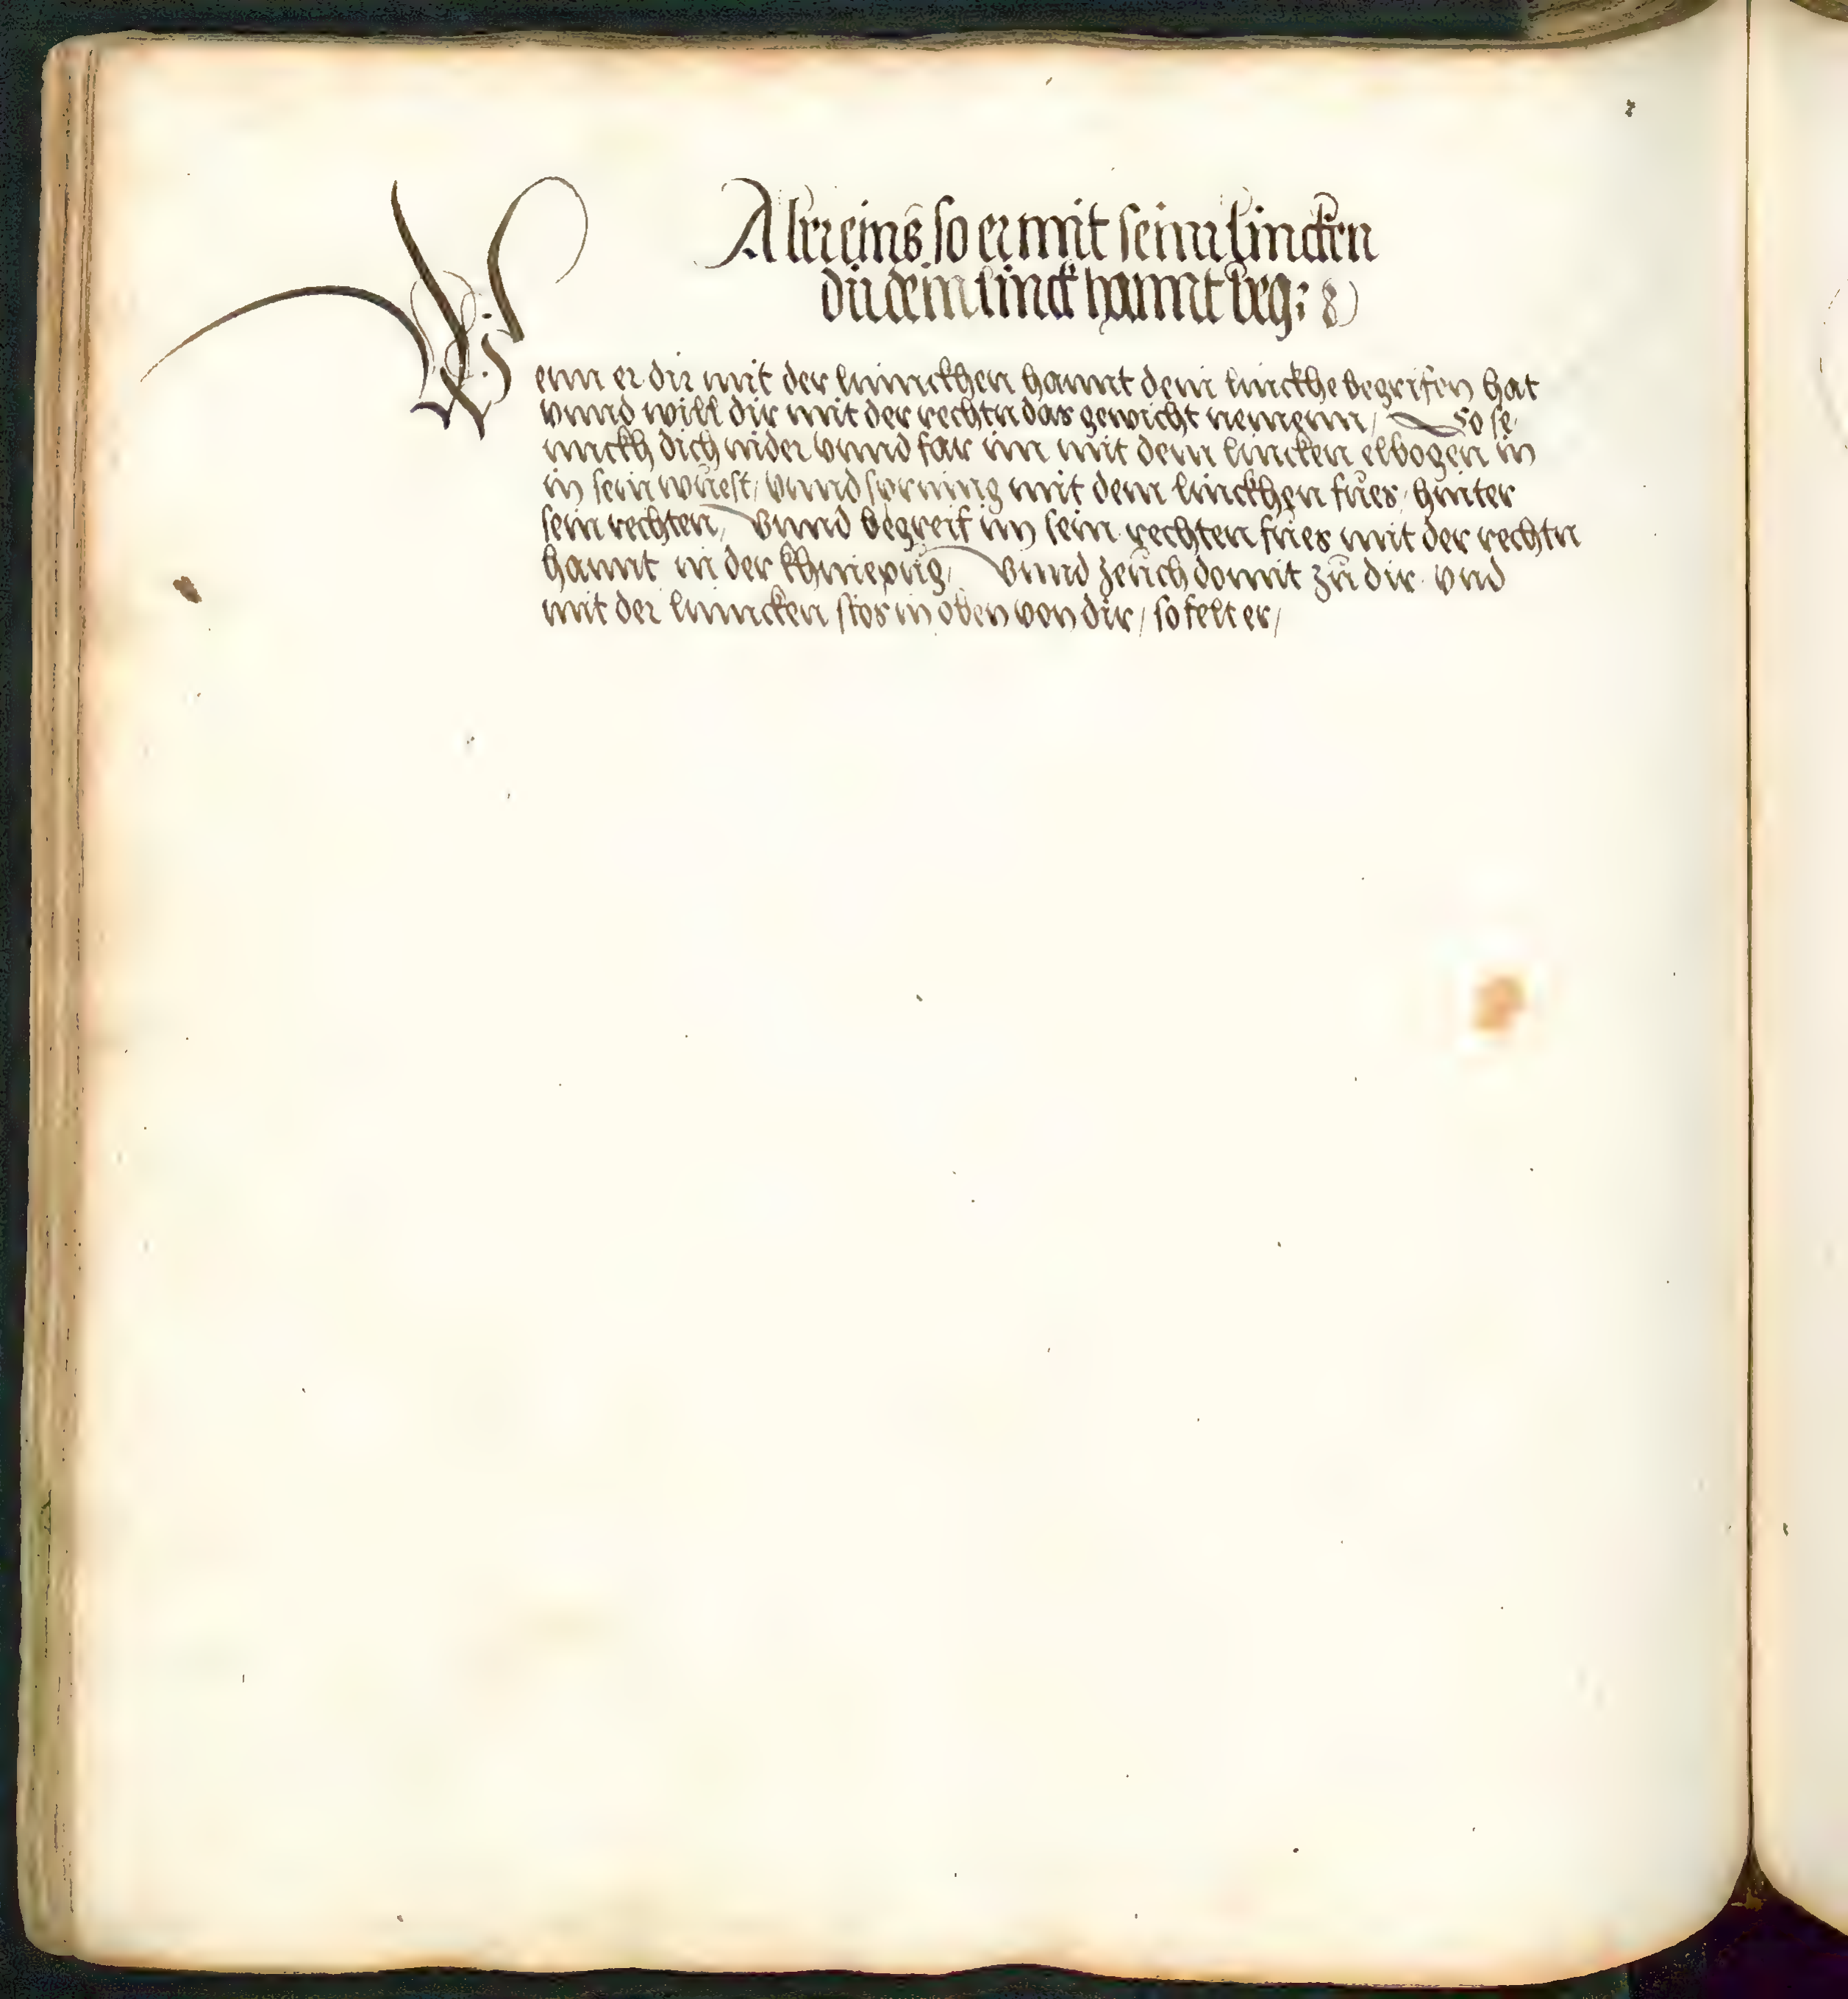 Aber eins so er mit seim lincken
dir dein linck hannt beg:
Wenn er dir mit der linnckhen hannt dein linckhe begrifen hat
vnnd will dir mit der rechtn das gewicht nemenn / So se
nnckh dich nider vnnd far im mit dem lincken elbogen in
in sein wuest / vnnd sprinng mit dem linckhen fues / hinter
sein rechten / vnnd begreif im sein rechten fues mit der rechtn
hannt in der khniepug / vnnd zeuch domit zu dir vnd
mit der linncken stos in oben von dir / so felt er /